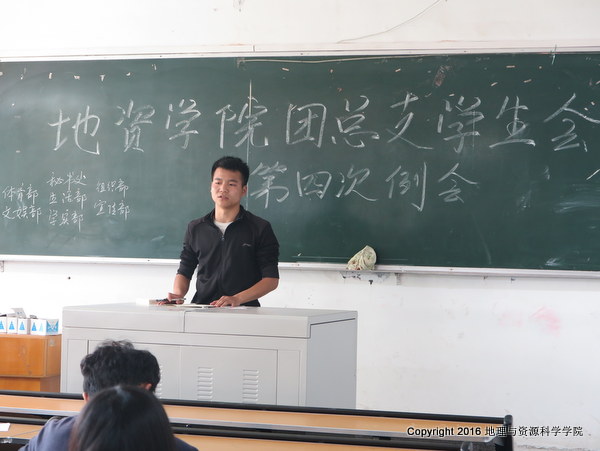 地资学院团总支学生会
第四次例会
秘书处 组织部
体育部 生活部 宣传部
文娱部 学习部
Copyright 2016 地理与资源科学学院